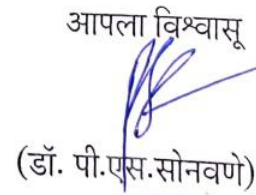 आपला विश्वासू
(डॉ. पी.एस.सोनवणे)